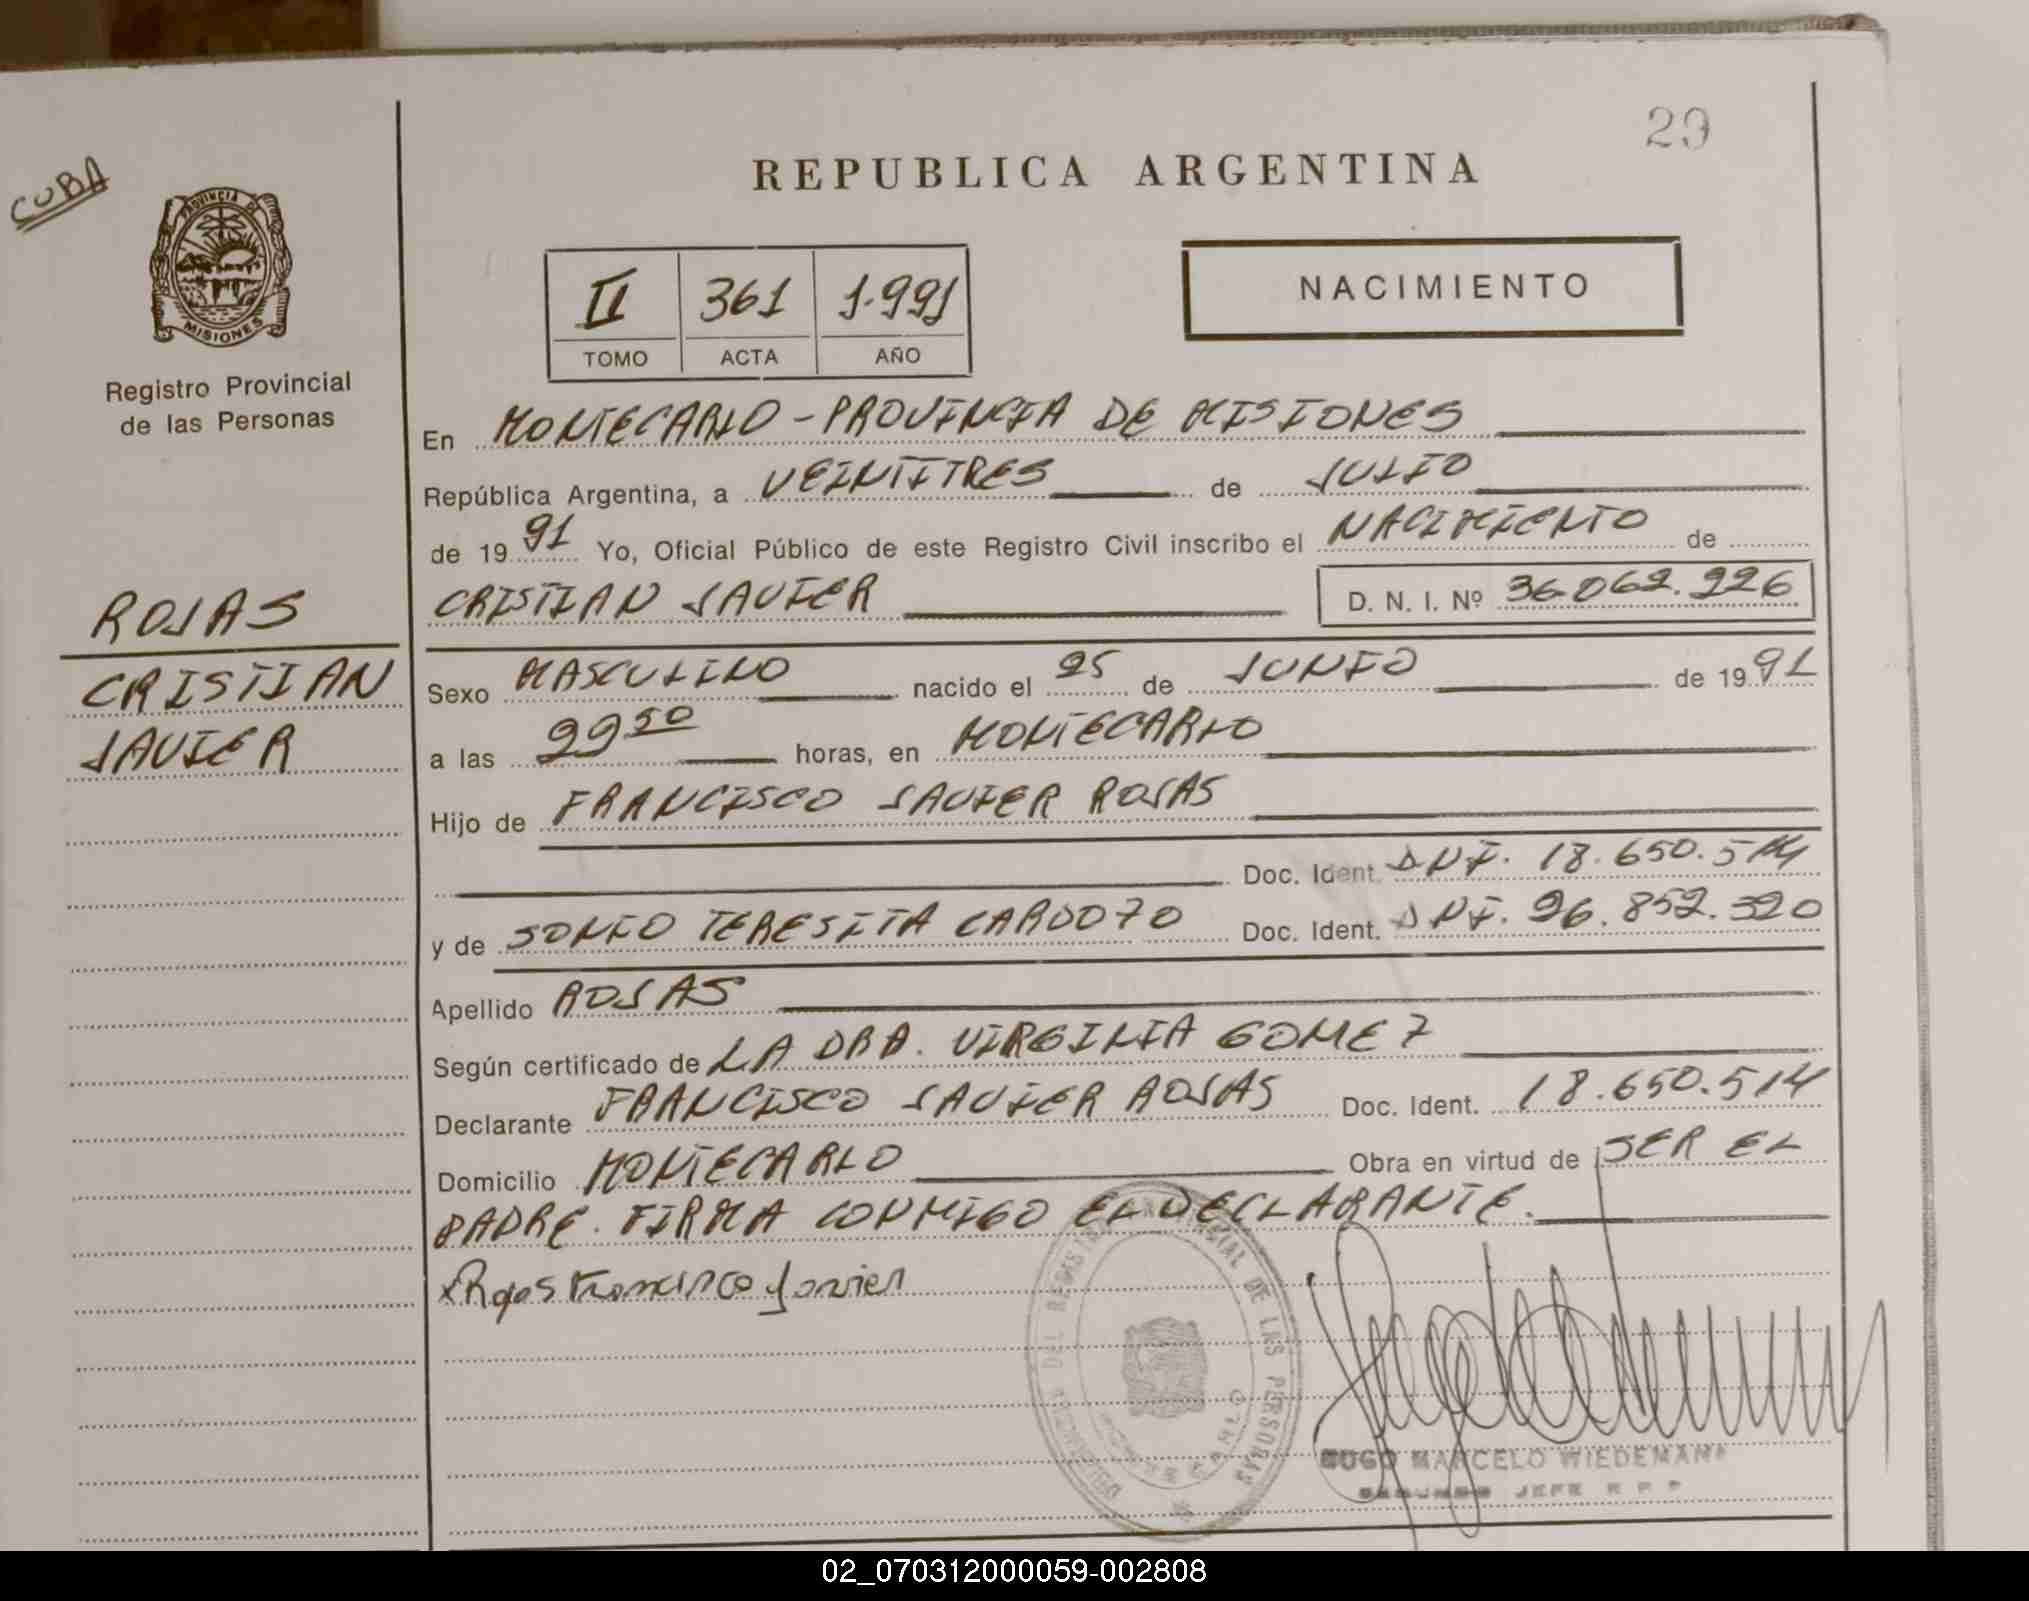 29
CUBA
REPUBLICA ARGENTINA
PROVINCIA DE
MISIONES
Registro Provincial
de las Personas
II 361 1.991
TOMO ACTA AÑO
NACIMIENTO
En MONTECARLO - PROVINCIA DE MISIONES
República Argentina, a VEINTITRES de JULIO
de 19 91 Yo, Oficial Público de este Registro Civil inscribo el NACIMIENTO de
CRISTIAN JAVIER D. N. I. Nº 36.062.226
ROJAS
CRISTIAN
JAVIER
Sexo MASCULINO nacido el 25 de JUNIO de 19 91
a las 22 50 horas, en MONTECARLO
Hijo de FRANCISCO JAVIER ROJAS
Doc. Ident. DNI. 18.650.514
y de SONIO TERESITA CARDOZO Doc. Ident. DNI. 26.852.320
Apellido ROJAS
Según certificado de LA DRA. VIRGILIA GOMEZ
Declarante FRANCISCO JAVIER ROJAS Doc. Ident. 18.650.514
Domicilio MONTECARLO Obra en virtud de SER EL
PADRE. FIRMA CONMIGO EL DECLARANTE.
x Rojas Francisco Javier
DEL REGISTRO PROVINCIAL DE LAS PERSONAS
MONTECARLO
HUGO MARCELO WIEDEMANN
SEGUNDO JEFE R P P
02_070312000059-002808